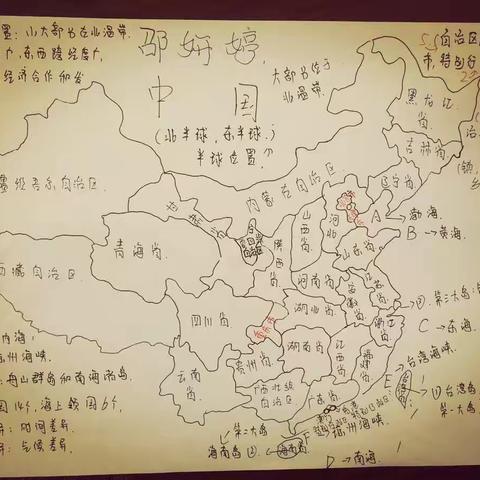 置：小大部分在北温带.
广，东西跨经度广，
经济合作和发
邵妍婷
中国
(北半球，东半球.)
半球位置
大部分位于
北温带.
自治区
市，特别行
黑龙江省.
吉林省.
辽宁省
治
(镇，
维吾尔自治区
内蒙古自治区.
甘肃省
青海省.
宁夏回族自治区
陕西省
山西省
河北
A→渤海.
B→黄海.
山东省
西藏自治区.
四川省
重庆市
河南省
湖北省
安徽省
江苏省
浙江省
第三大岛：
C→东海.
内海：
琼州海峡.
：舟山群岛和南海诸岛
国14个，海上邻国6个，
异：时间差异.
异：气候差异.
云南省
贵州省.
湖南省
江西省
福建省
广西壮族自治区
广东省
E→台湾海峡.
台湾岛
第一大岛
F→琼州海峡.
第二大岛
海南岛
海南省
D→南海.